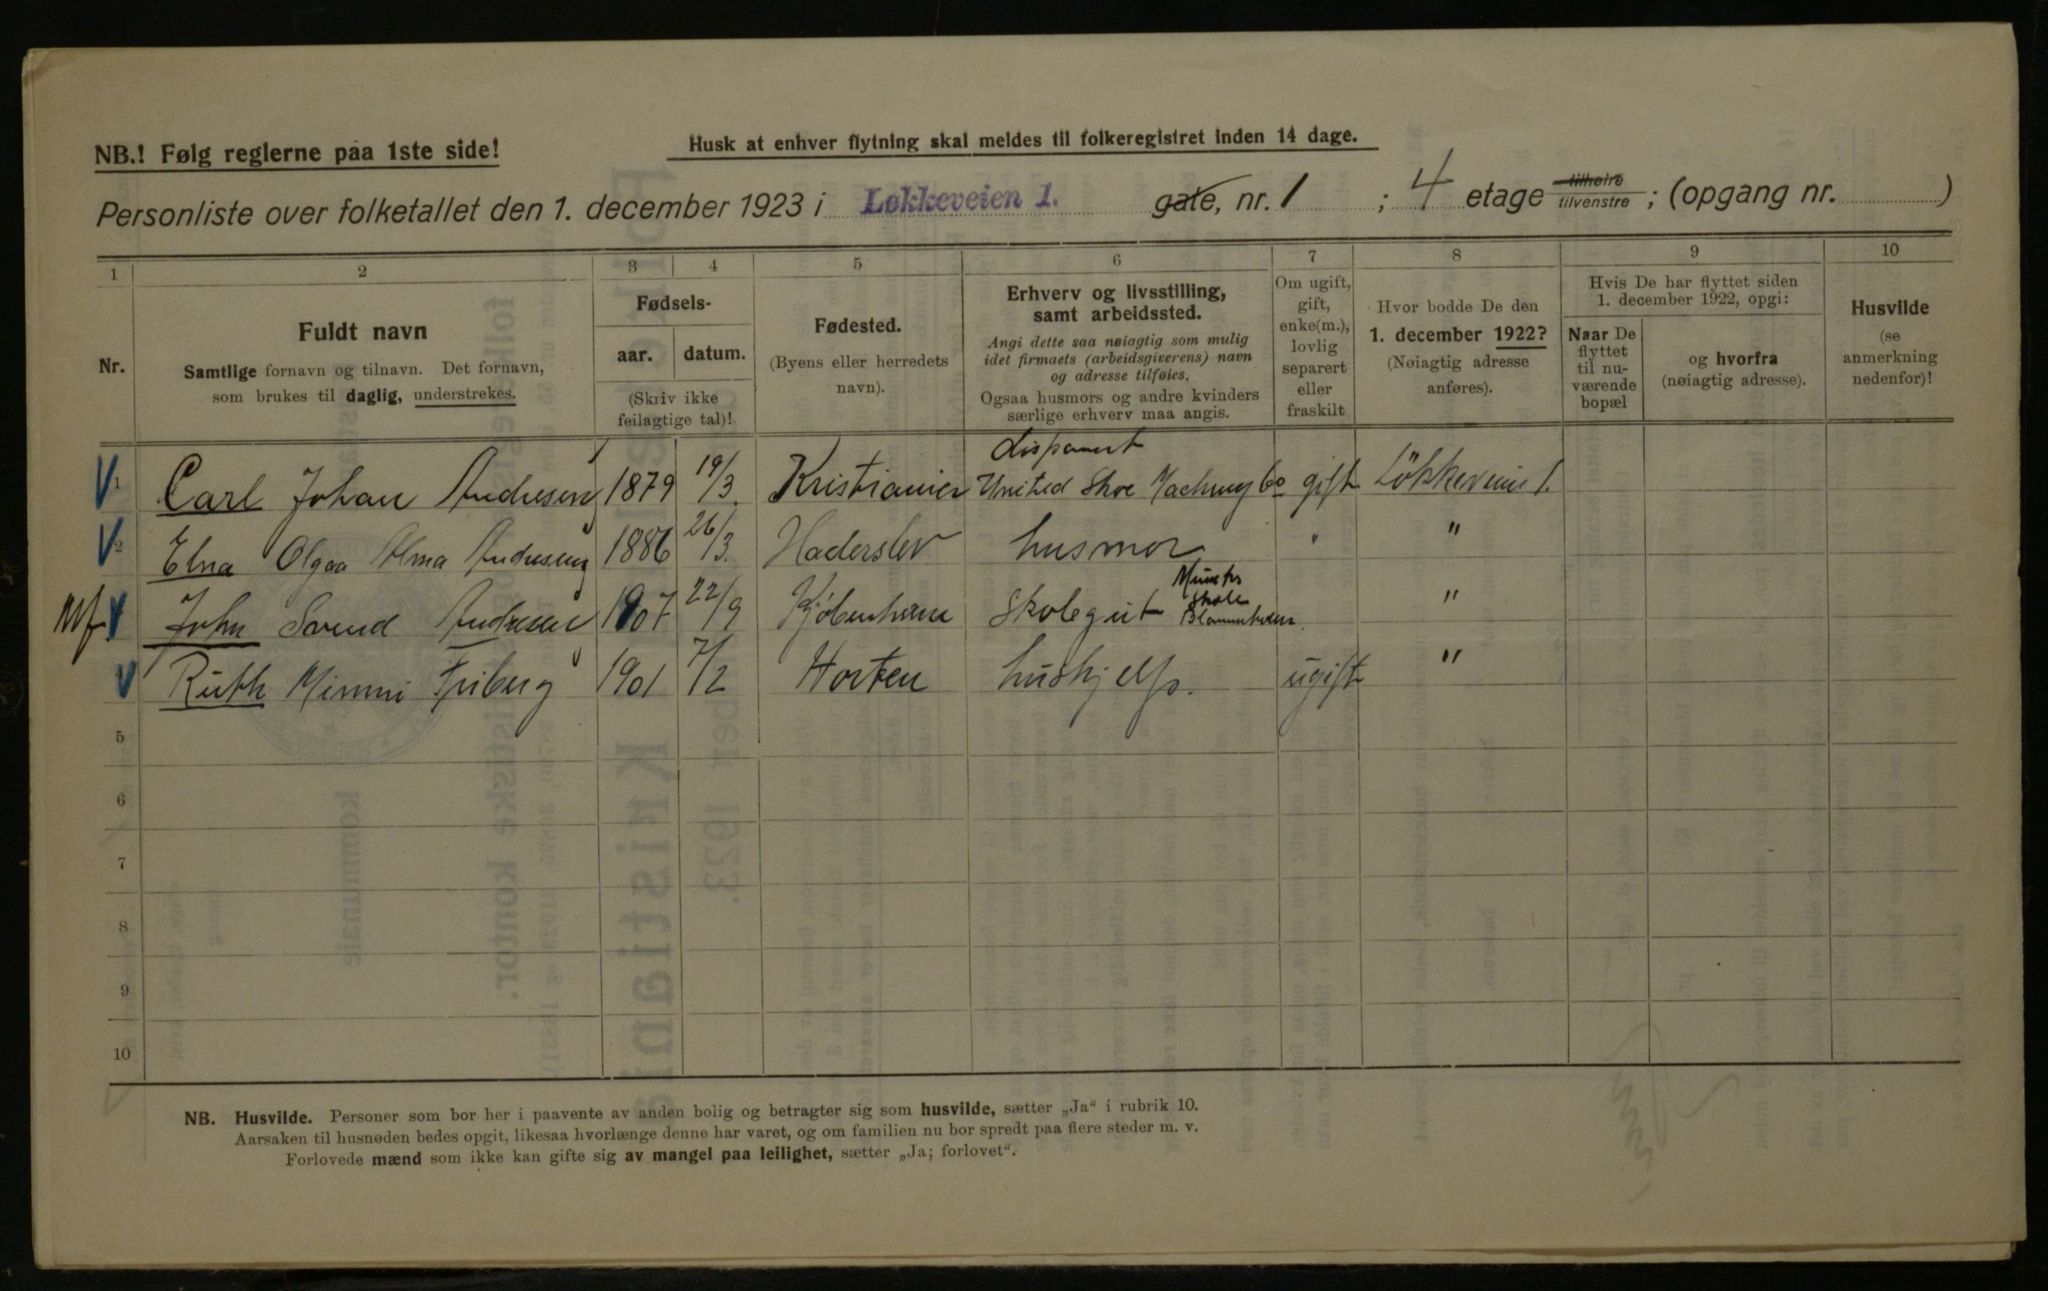 NB.! Følg reglerne paa 1ste side!
Husk at enhver flytning skal meldes til folkeregistret inden 14 dage.
Personliste over folketallet den 1. december 1923 i Løkkeveien 1. gate, nr. 1 ; 4 etage tilhøire tilvenstre ; (opgang nr. )
1 2 3 4 5 6 7 8 9 10
Nr.
Fuldt navn
Samtlige fornavn og tilnavn. Det fornavn,
som brukes til daglig, understrekes.
Fødsels-
aar. datum.
(Skriv ikke
feilagtige tal)!
Fødested.
(Byens eller herredets
navn).
Erhverv og livsstilling,
samt arbeidssted.
Angi dette saa nøiagtig som mulig
idet firmaets (arbeidsgiverens) navn
og adresse tilføies.
Ogsaa husmors og andre kvinders
særlige erhverv maa angis.
Om ugift,
gift,
enke(m.),
lovlig
separert
eller
fraskilt
Hvor bodde De den
1. december 1922?
(Nøiagtig adresse
anføres).
Hvis De har flyttet siden
1. december 1922, opgi:
Naar De
flyttet
til nu-
værende
bopæl
og hvorfra
(nøiagtig adresse).
Husvilde
(se
anmerkning
nedenfor)!
1 Carl Johan Andresen 1879 19/3. Kristiania disponent United Shoe Machinery Co gift Løkkeveien 1.
2 Elna Olgaa Alma Andresen 1886 26/3. Haderslev husmor " "
John Svend Andresen 1907 22/9 Kjøbenhavn Skolegut skole "
Ruth Mimmi Friberg 1901 7/2 Horten hushjelp. ugift "
5
6
7
8
9
10
NB. Husvilde. Personer som bor her i paavente av anden bolig og betragter sig som husvilde, sætter „Ja“ i rubrik 10.
Aarsaken til husnøden bedes opgit, likesaa hvorlænge denne har varet, og om familien nu bor spredt paa flere steder m. v.
Forlovede mænd som ikke kan gifte sig av mangel paa leilighet, sætter „Ja; forlovet“.